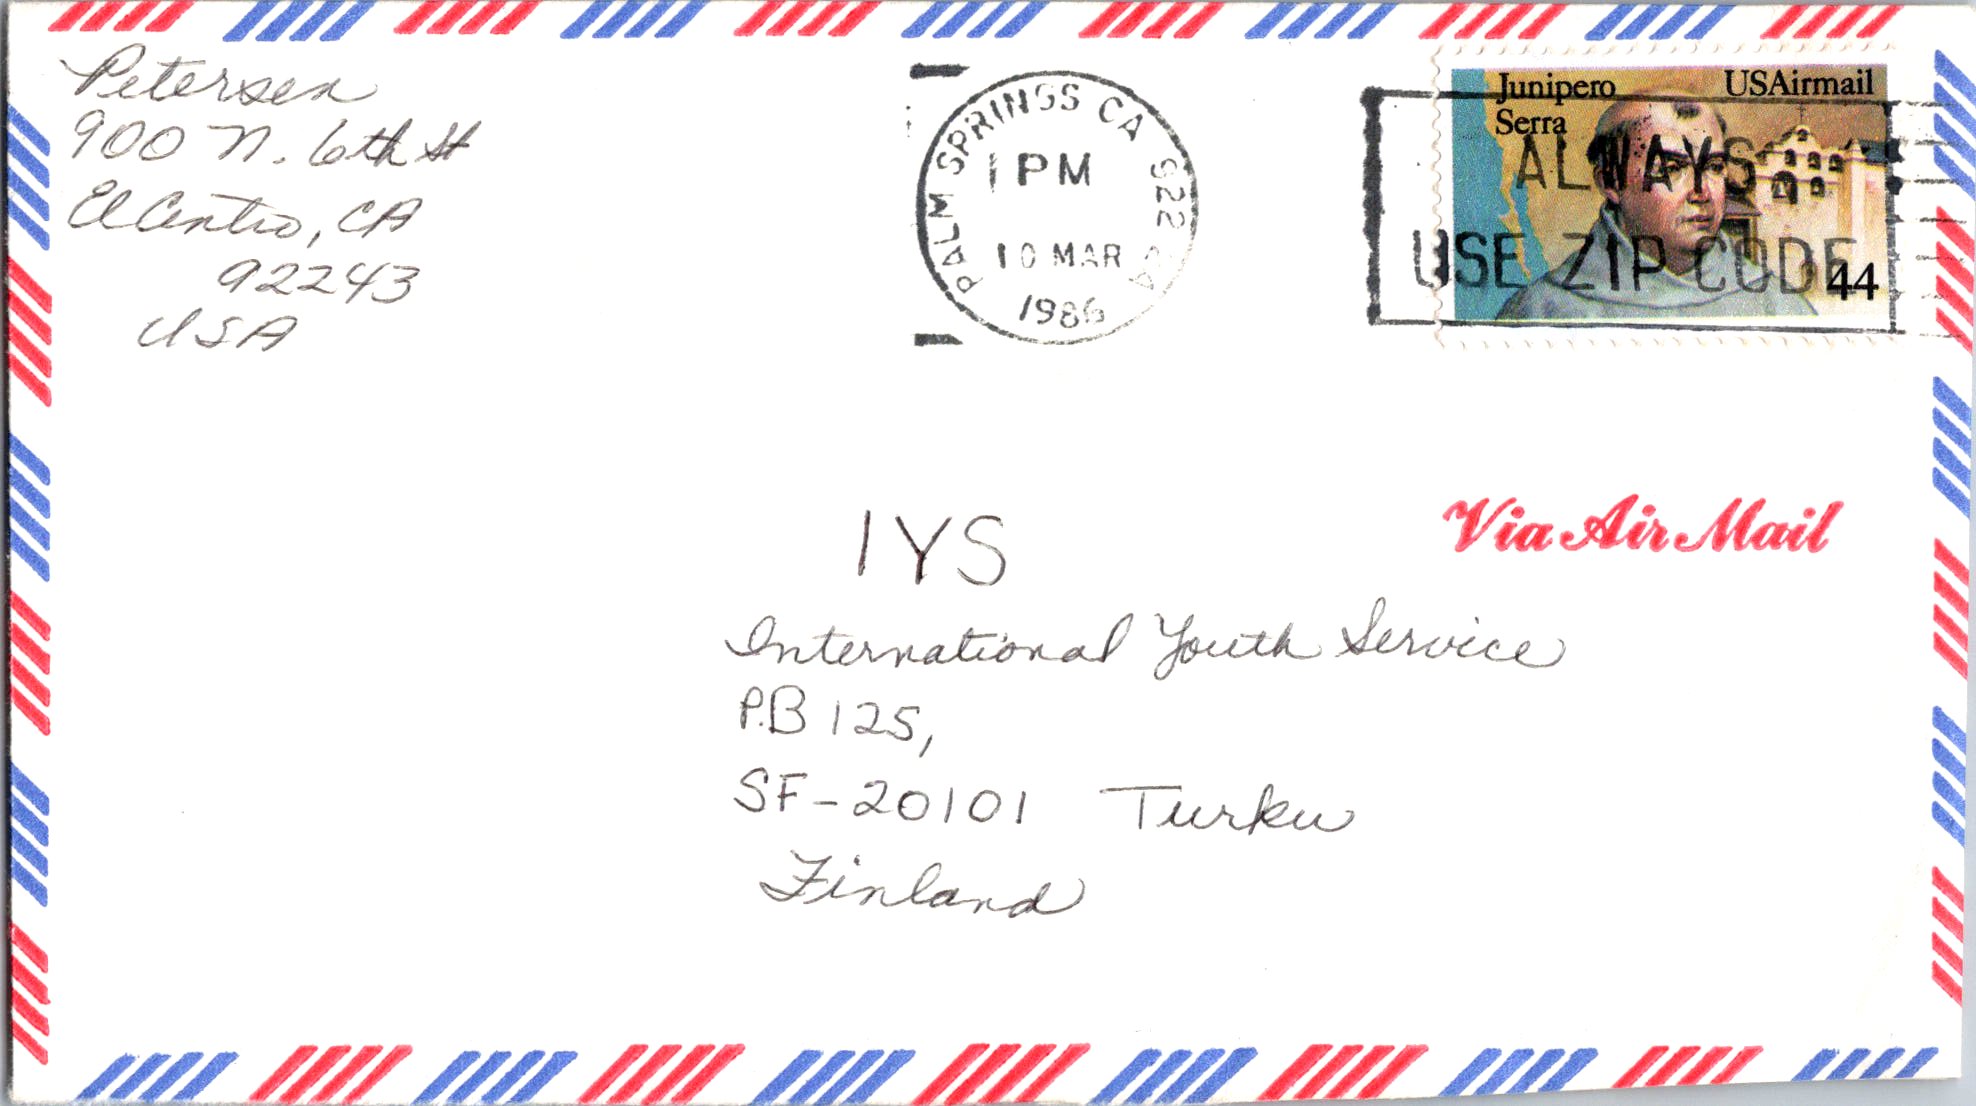 Petersen
900 N. 6th St
El Centro, CA
92243
USA
PALM SPRINGS CA 922
1 PM
10 MAR
1986
Junipero
Serra
USAirmail
44
ALWAYS
USE ZIP CODE
Via Air Mail
IYS
International Youth Service
P.B 125,
SF-20101 Turku
Finland